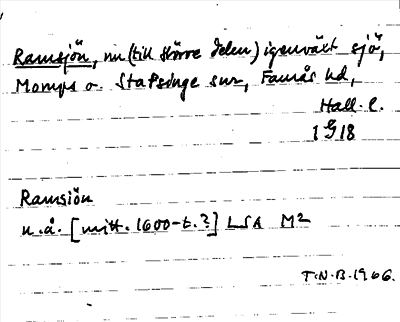 Ramsjön, nu (till större delen) igenväxt sjö,
Morups o. Stafsinge snr, Faurås hd,
Hall. l.
1918
Ramsiön
u.å. [mitt. 1600-t.?] LSA M2
T.N.B. 1966.